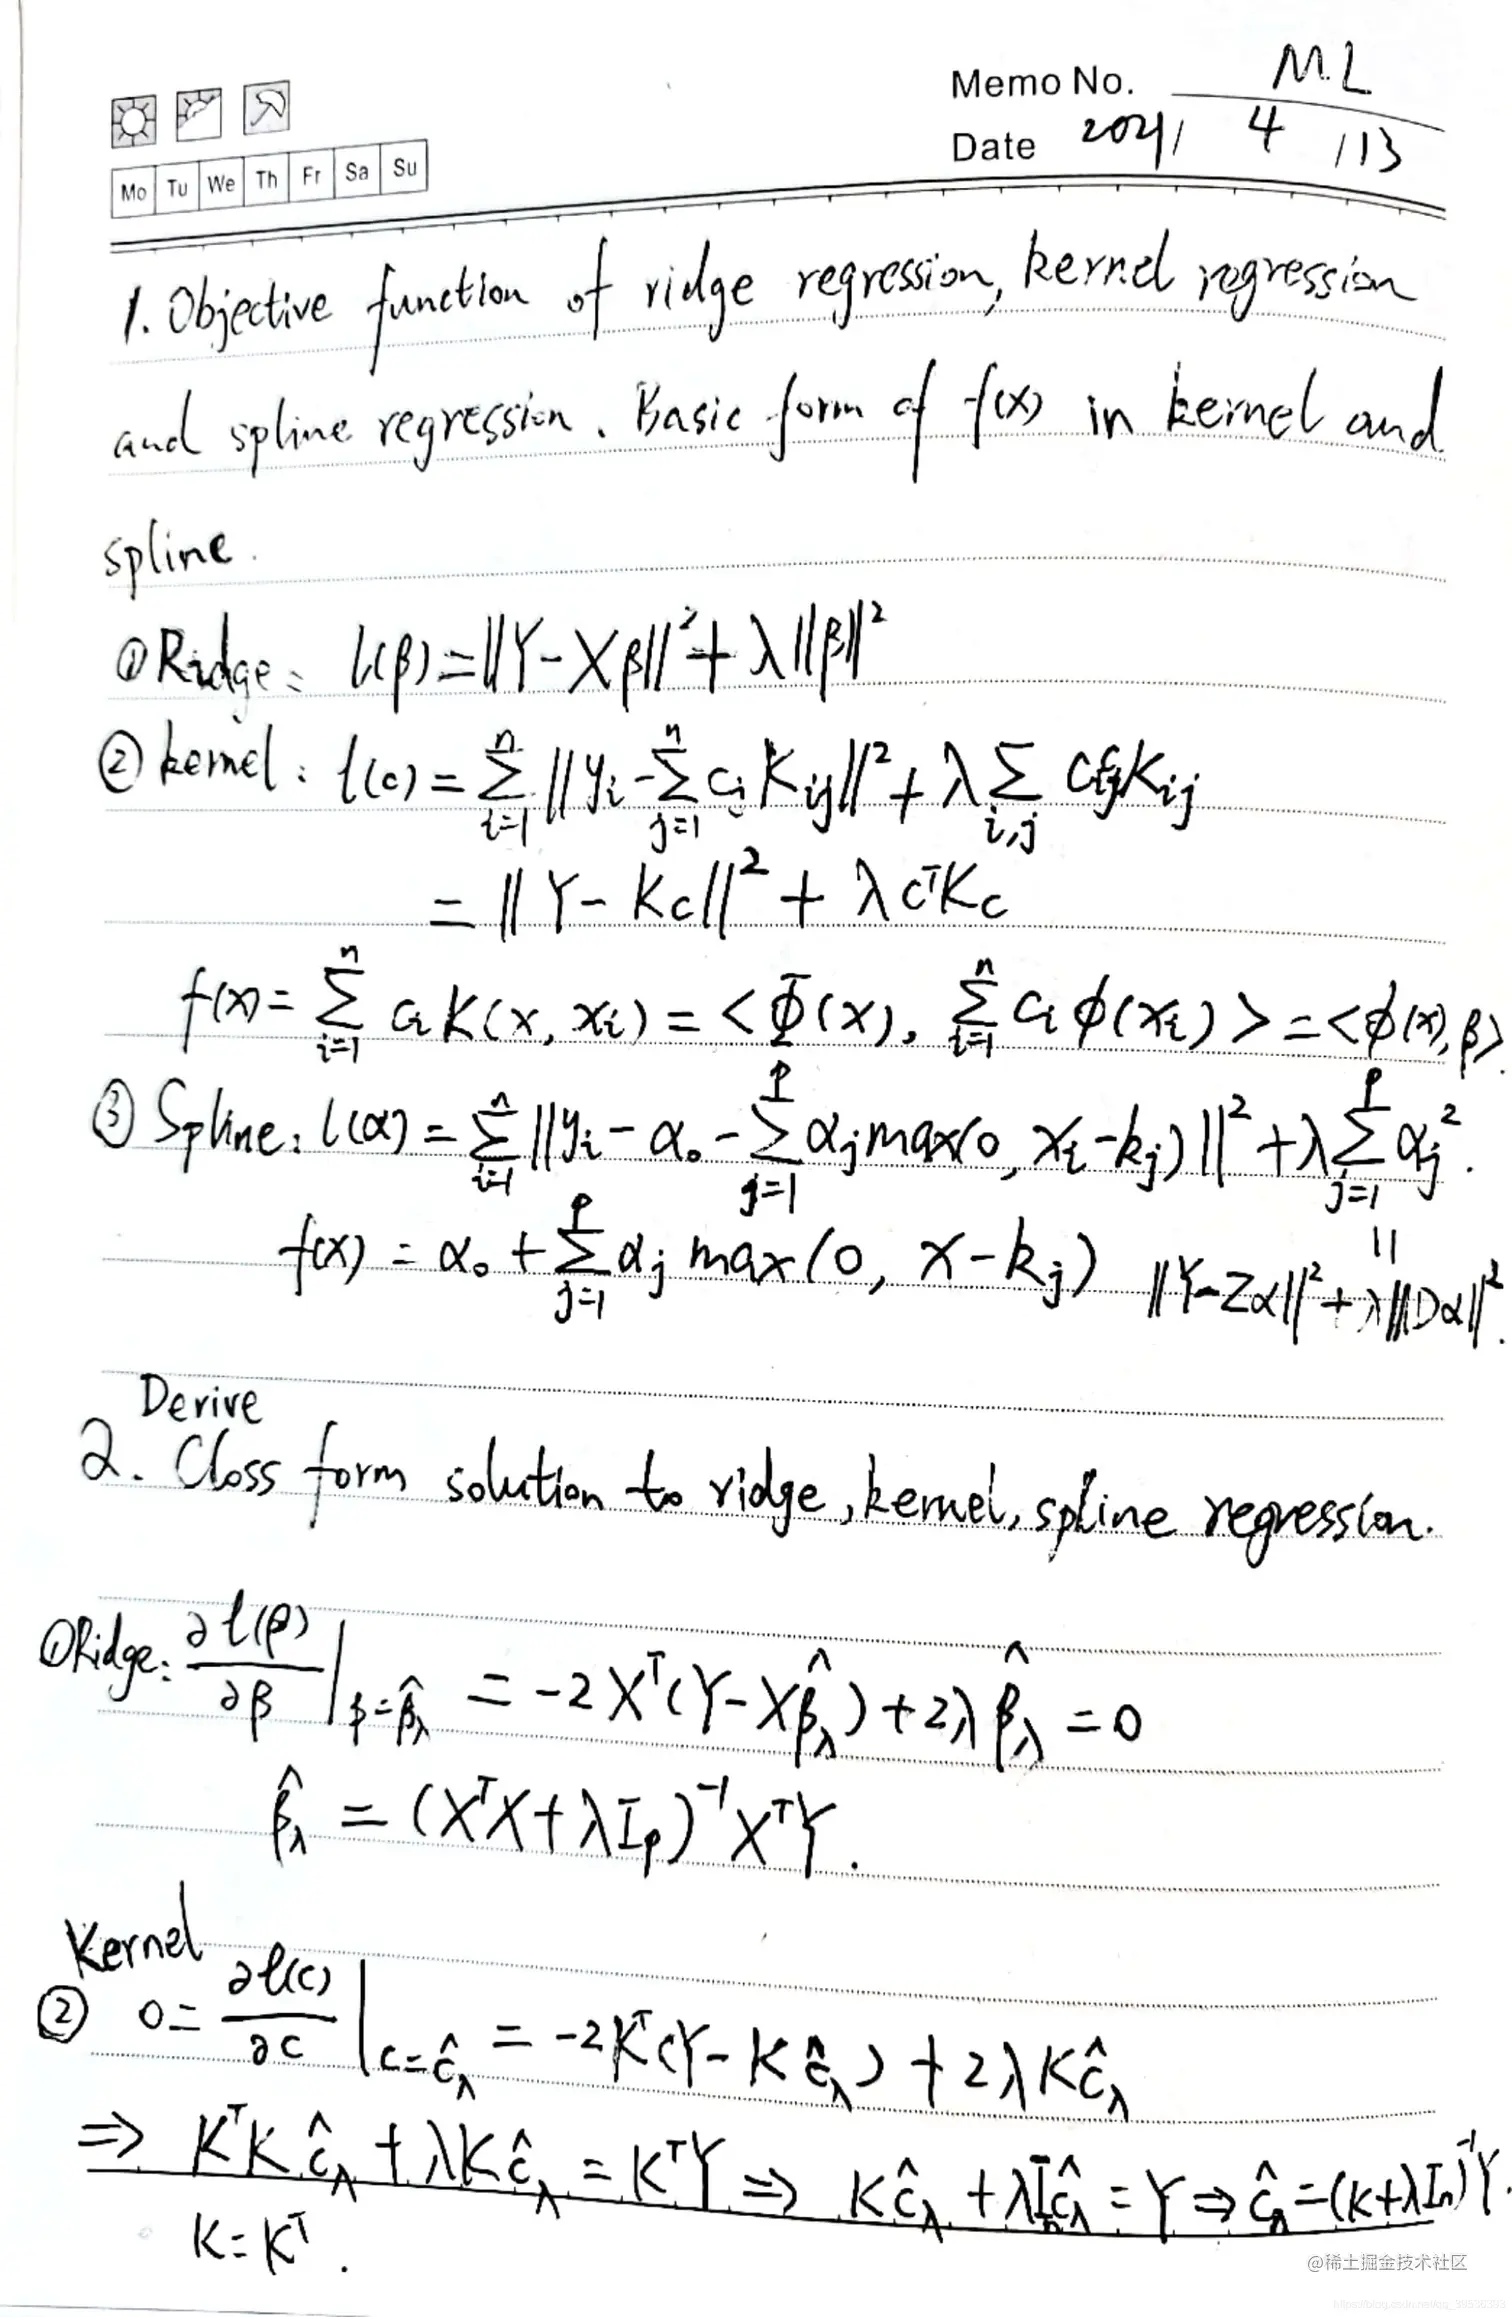 Memo No. ML
Date 2021/ 4 /13
Mo Tu We Th Fr Sa Su
1. Objective function of ridge regression, kernel regression
and spline regression. Basic form of f(x) in kernel and
spline.
① Ridge: l(β) = ||Y - Xβ||² + λ||β||²
② kernel: l(c) = Σ_{i=1}^{n} ||y_i - Σ_{j=1}^{n} c_j K_{ij}||² + λ Σ_{i,j} c_i c_j K_{ij}
= ||Y - Kc||² + λ c^T K c
f(x) = Σ_{i=1}^{n} c_i K(x, x_i) = <Φ(x), Σ_{i=1}^{n} c_i φ(x_i)> = <φ(x), β>.
③ Spline: l(α) = Σ_{i=1}^{n} ||y_i - α_0 - Σ_{j=1}^{p} α_j max(0, x_i - k_j)||² + λ Σ_{j=1}^{p} α_j².
f(x) = α_0 + Σ_{j=1}^{p} α_j max(0, x - k_j) || ||Y - Zα||² + λ||Dα||².
Derive
2. Closs form solution to ridge, kernel, spline regression.
① Ridge: ∂l(β)/∂β |_{β=β̂_λ} = -2X^T(Y - Xβ̂_λ) + 2λβ̂_λ = 0
β̂_λ = (X^T X + λI_p)^{-1} X^T Y.
Kernel
② 0 = ∂l(c)/∂c |_{c=ĉ_λ} = -2K^T(Y - Kĉ_λ) + 2λKĉ_λ
⇒ K^T K ĉ_λ + λKĉ_λ = K^T Y ⇒ Kĉ_λ + λI_n ĉ_λ = Y ⇒ ĉ_λ = (K + λI_n)^{-1} Y.
K = K^T.
@稀土掘金技术社区